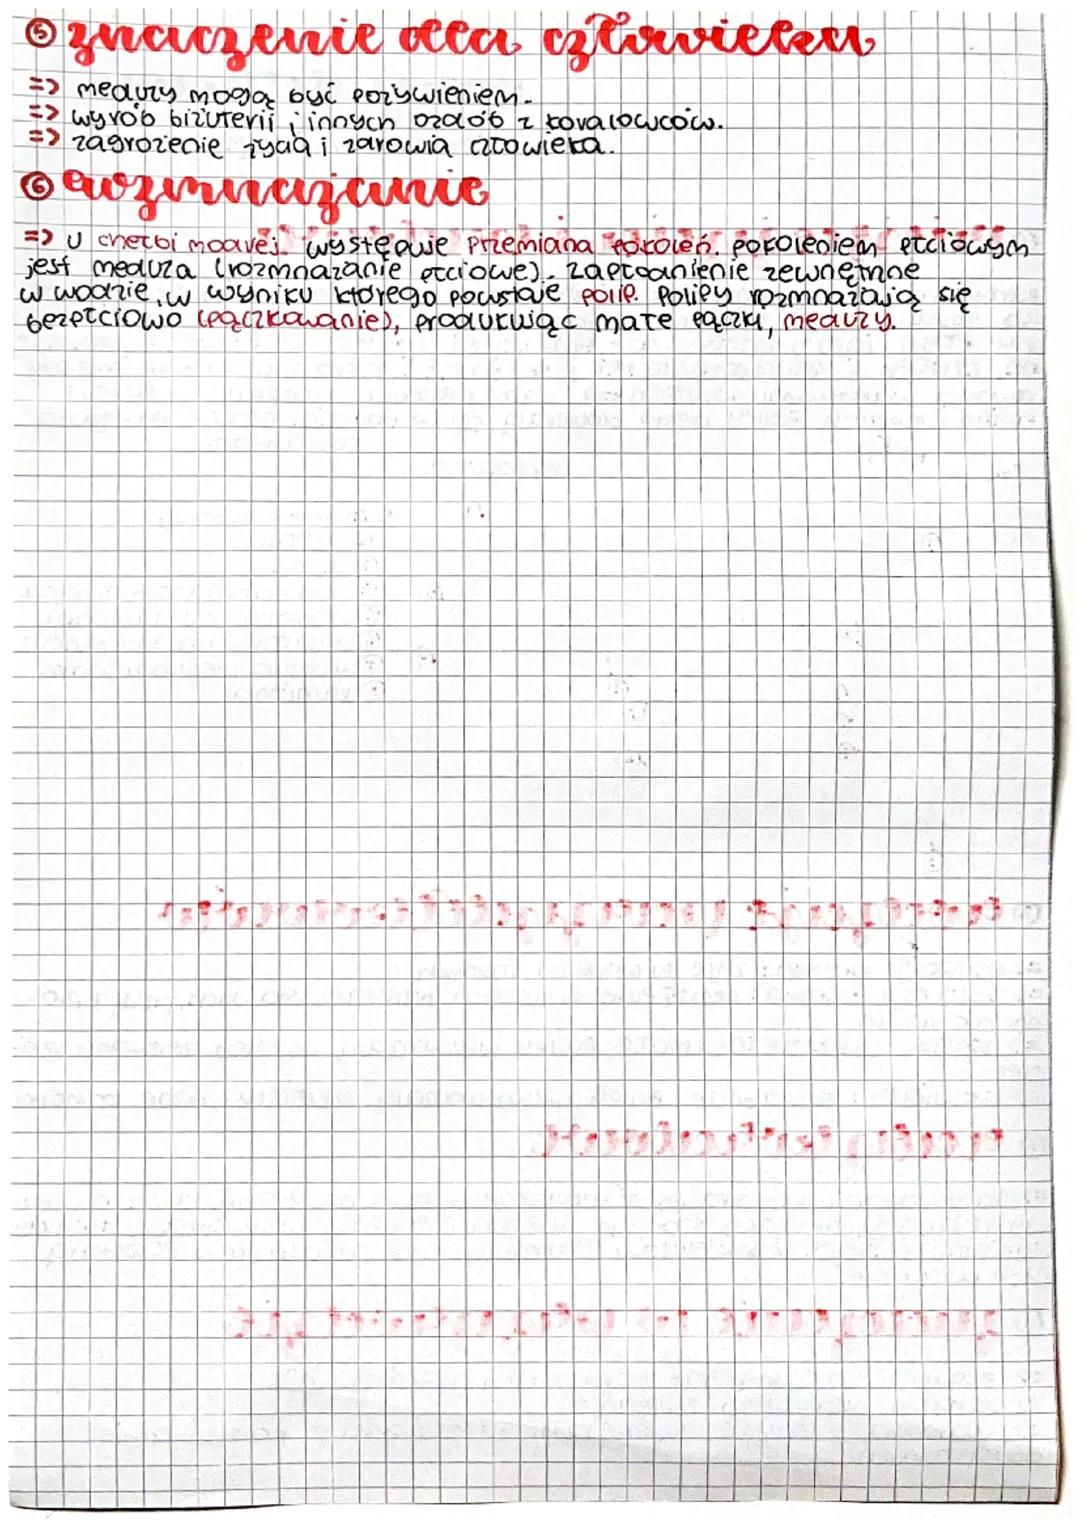 ⑤ znaczenie dla człowieka
=> meduzy mogą być pożywieniem.
=> wyrób biżuterii i innych ozdób z koralowców.
=> zagrożenie życia i zdrowia człowieka.
⑥ rozmnażanie
=> U chełbi modrej występuje przemiana pokoleń. pokoleniem płciowym
jest meduza (rozmnażanie płciowe). zapłodnienie zewnętrzne
w wodzie, w wyniku którego powstaje polip. Polipy rozmnażają się
bezpłciowo (pączkowanie), produkując małe pączki, meduzy.